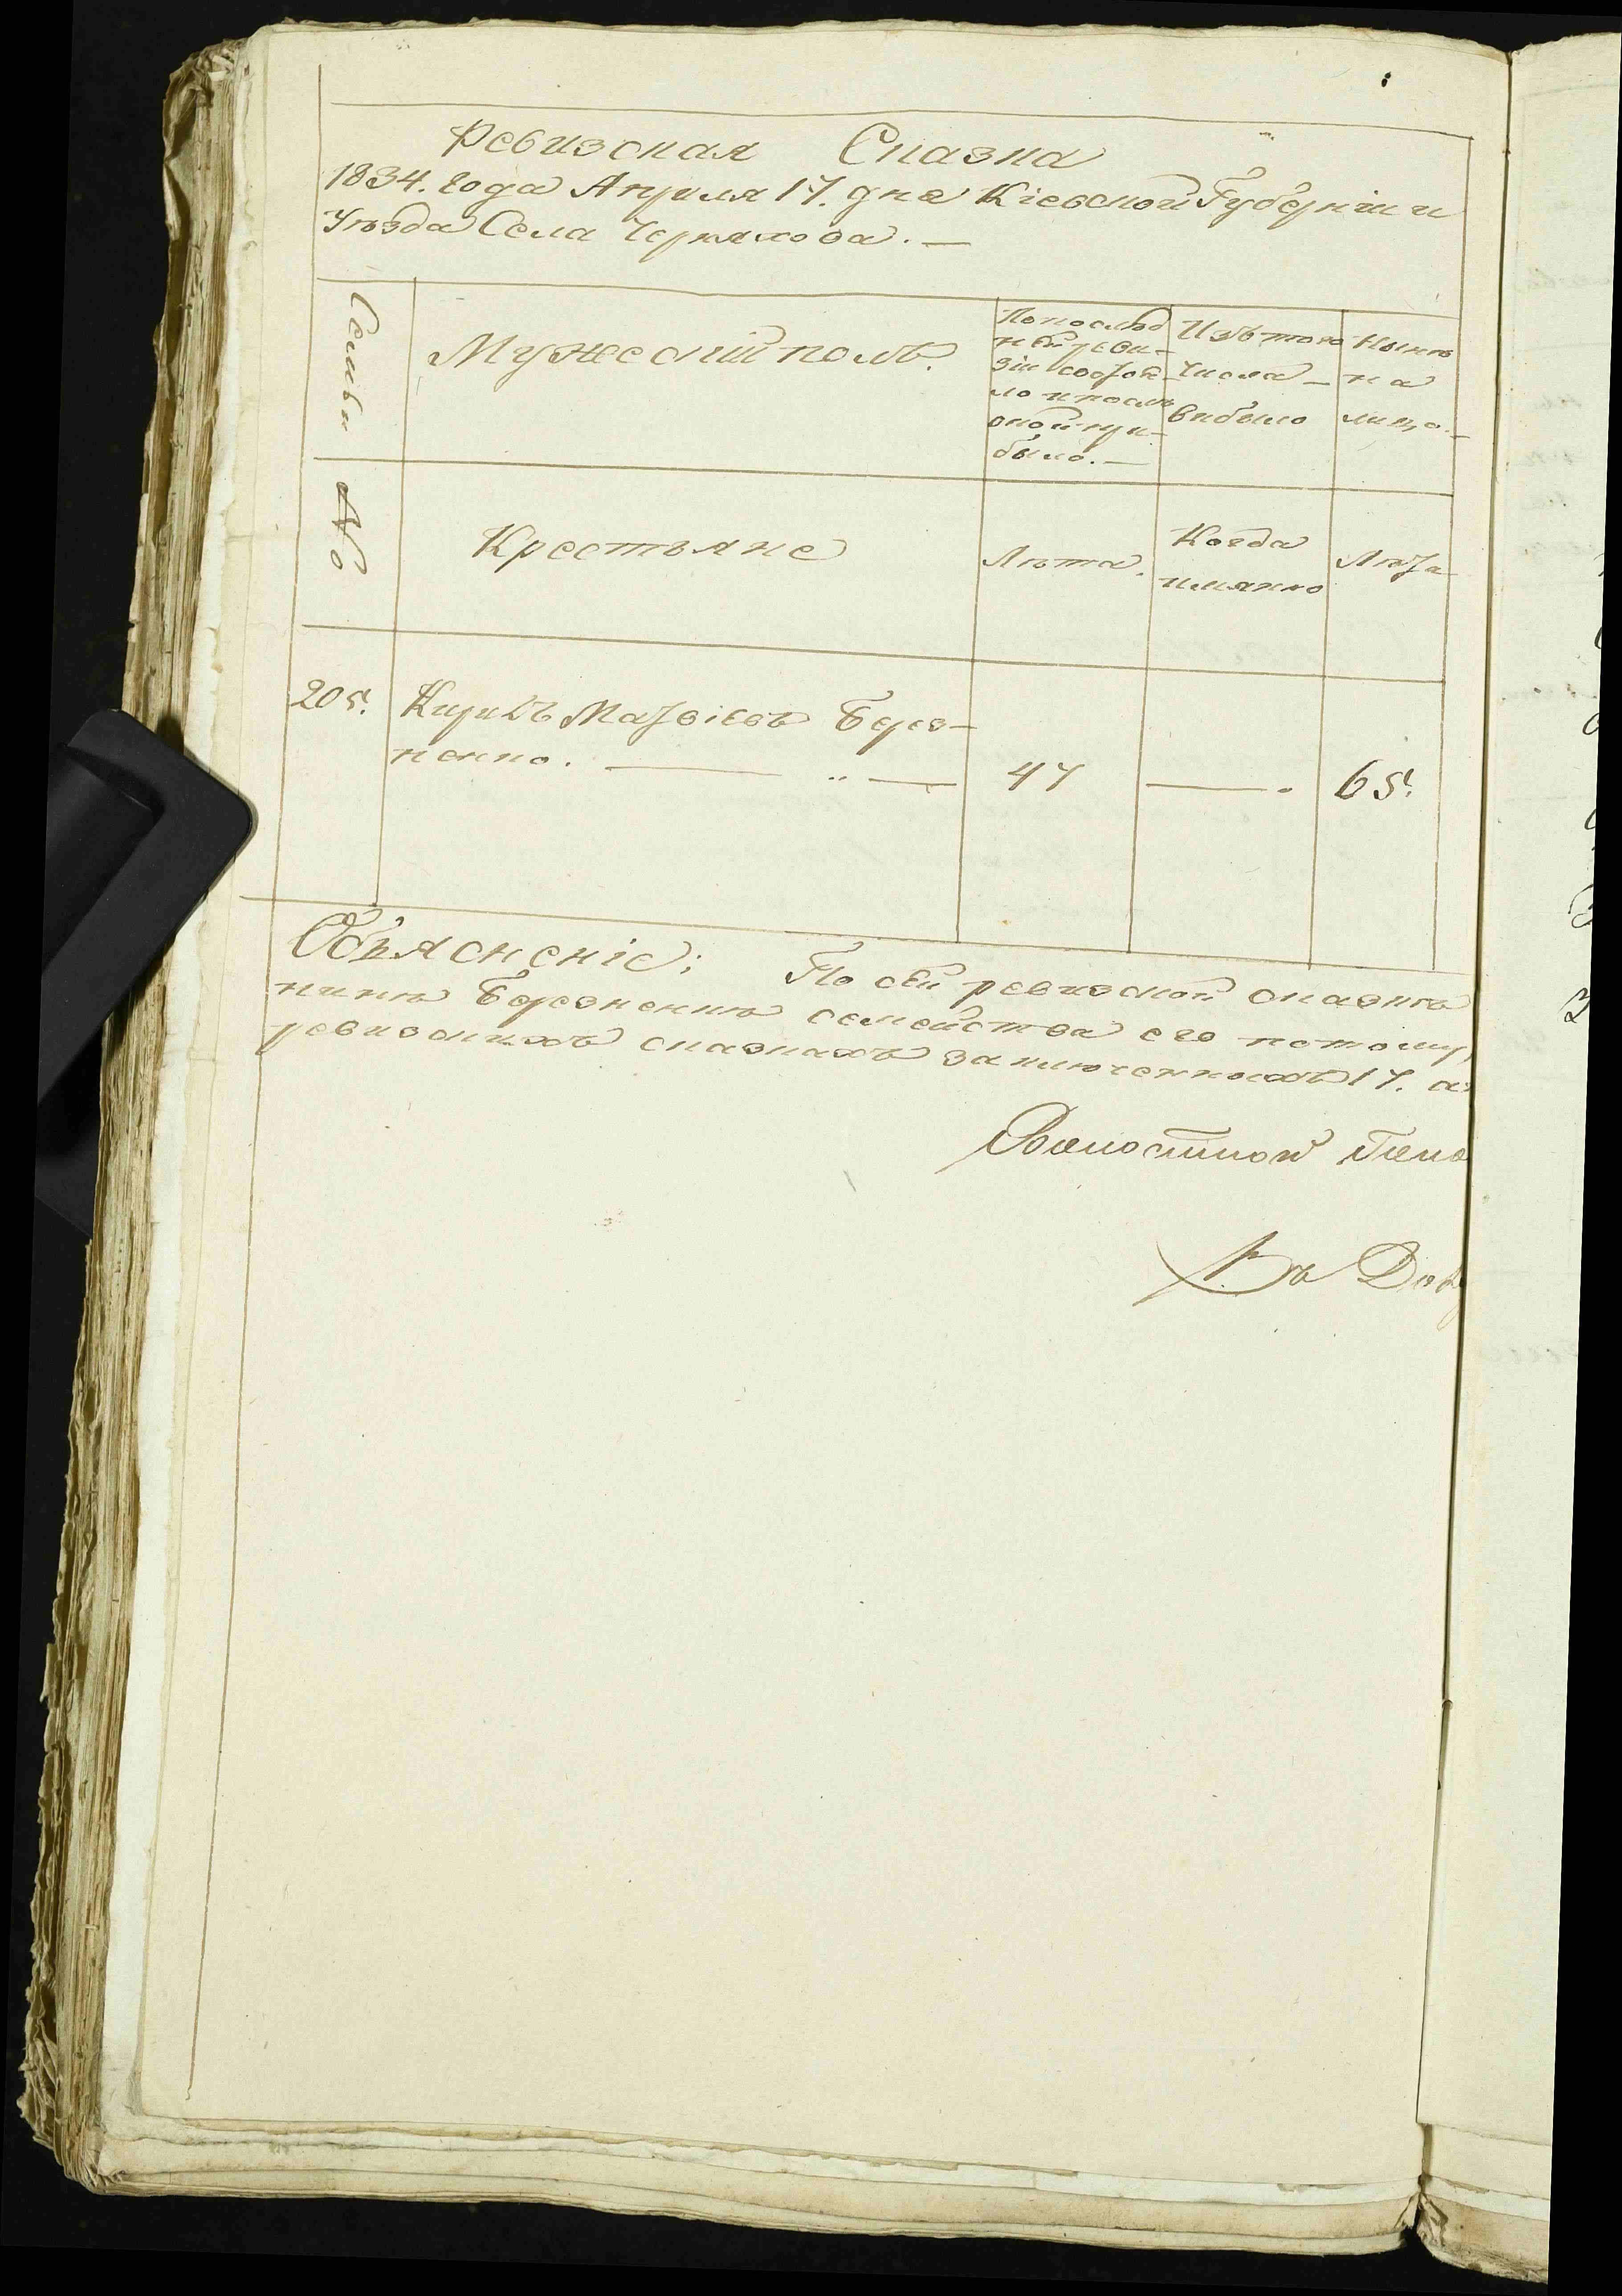 Ревизская Сказка
1834. года Апреля 17. дня Кіевской Губерніи и
Уѣзда Села Черняхова. —
Семьи
Мужескій полъ.
По послѣд
ней реви-
зіи состоя-
ло и послѣ
оной при-
было. —
Изъ того
числа —
выбыло
Нынѣ
на
лицо. —
№
Крестьяне
Лѣта.
Когда
имянно
Лѣта
205. Кирикъ Матвіевъ Берез-
ненко. — „ — 47 — . 65.
Объясненіе; По сей ревизской сказкѣ
никъ Березненкъ семейства его потому,
ревизскихъ сказкахъ заключенныхъ 17. а
Волостной Голо
Къ